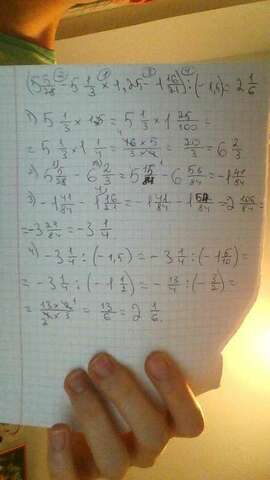 (5 5/28 - 5 1/3 × 1,25 - 1 16/21) : (-1,5) = 2 1/6
1) 5 1/3 × 1,25 = 5 1/3 × 1 25/100 =
= 5 1/3 × 1 1/4 = 16 × 5 / 3 × 4 = 20/3 = 6 2/3
2) 5 5/28 - 6 2/3 = 5 15/84 - 6 56/84 = -1 41/84
3) -1 41/84 - 1 16/21 = -1 41/84 - 1 64/84 = -2 105/84 =
= -3 21/84 = -3 1/4
4) -3 1/4 : (-1,5) = -3 1/4 : (-1 5/10) =
= -3 1/4 : (-1 1/2) = -13/4 : (-3/2) =
= 13 × 2 / 4 × 3 = 13/6 = 2 1/6.